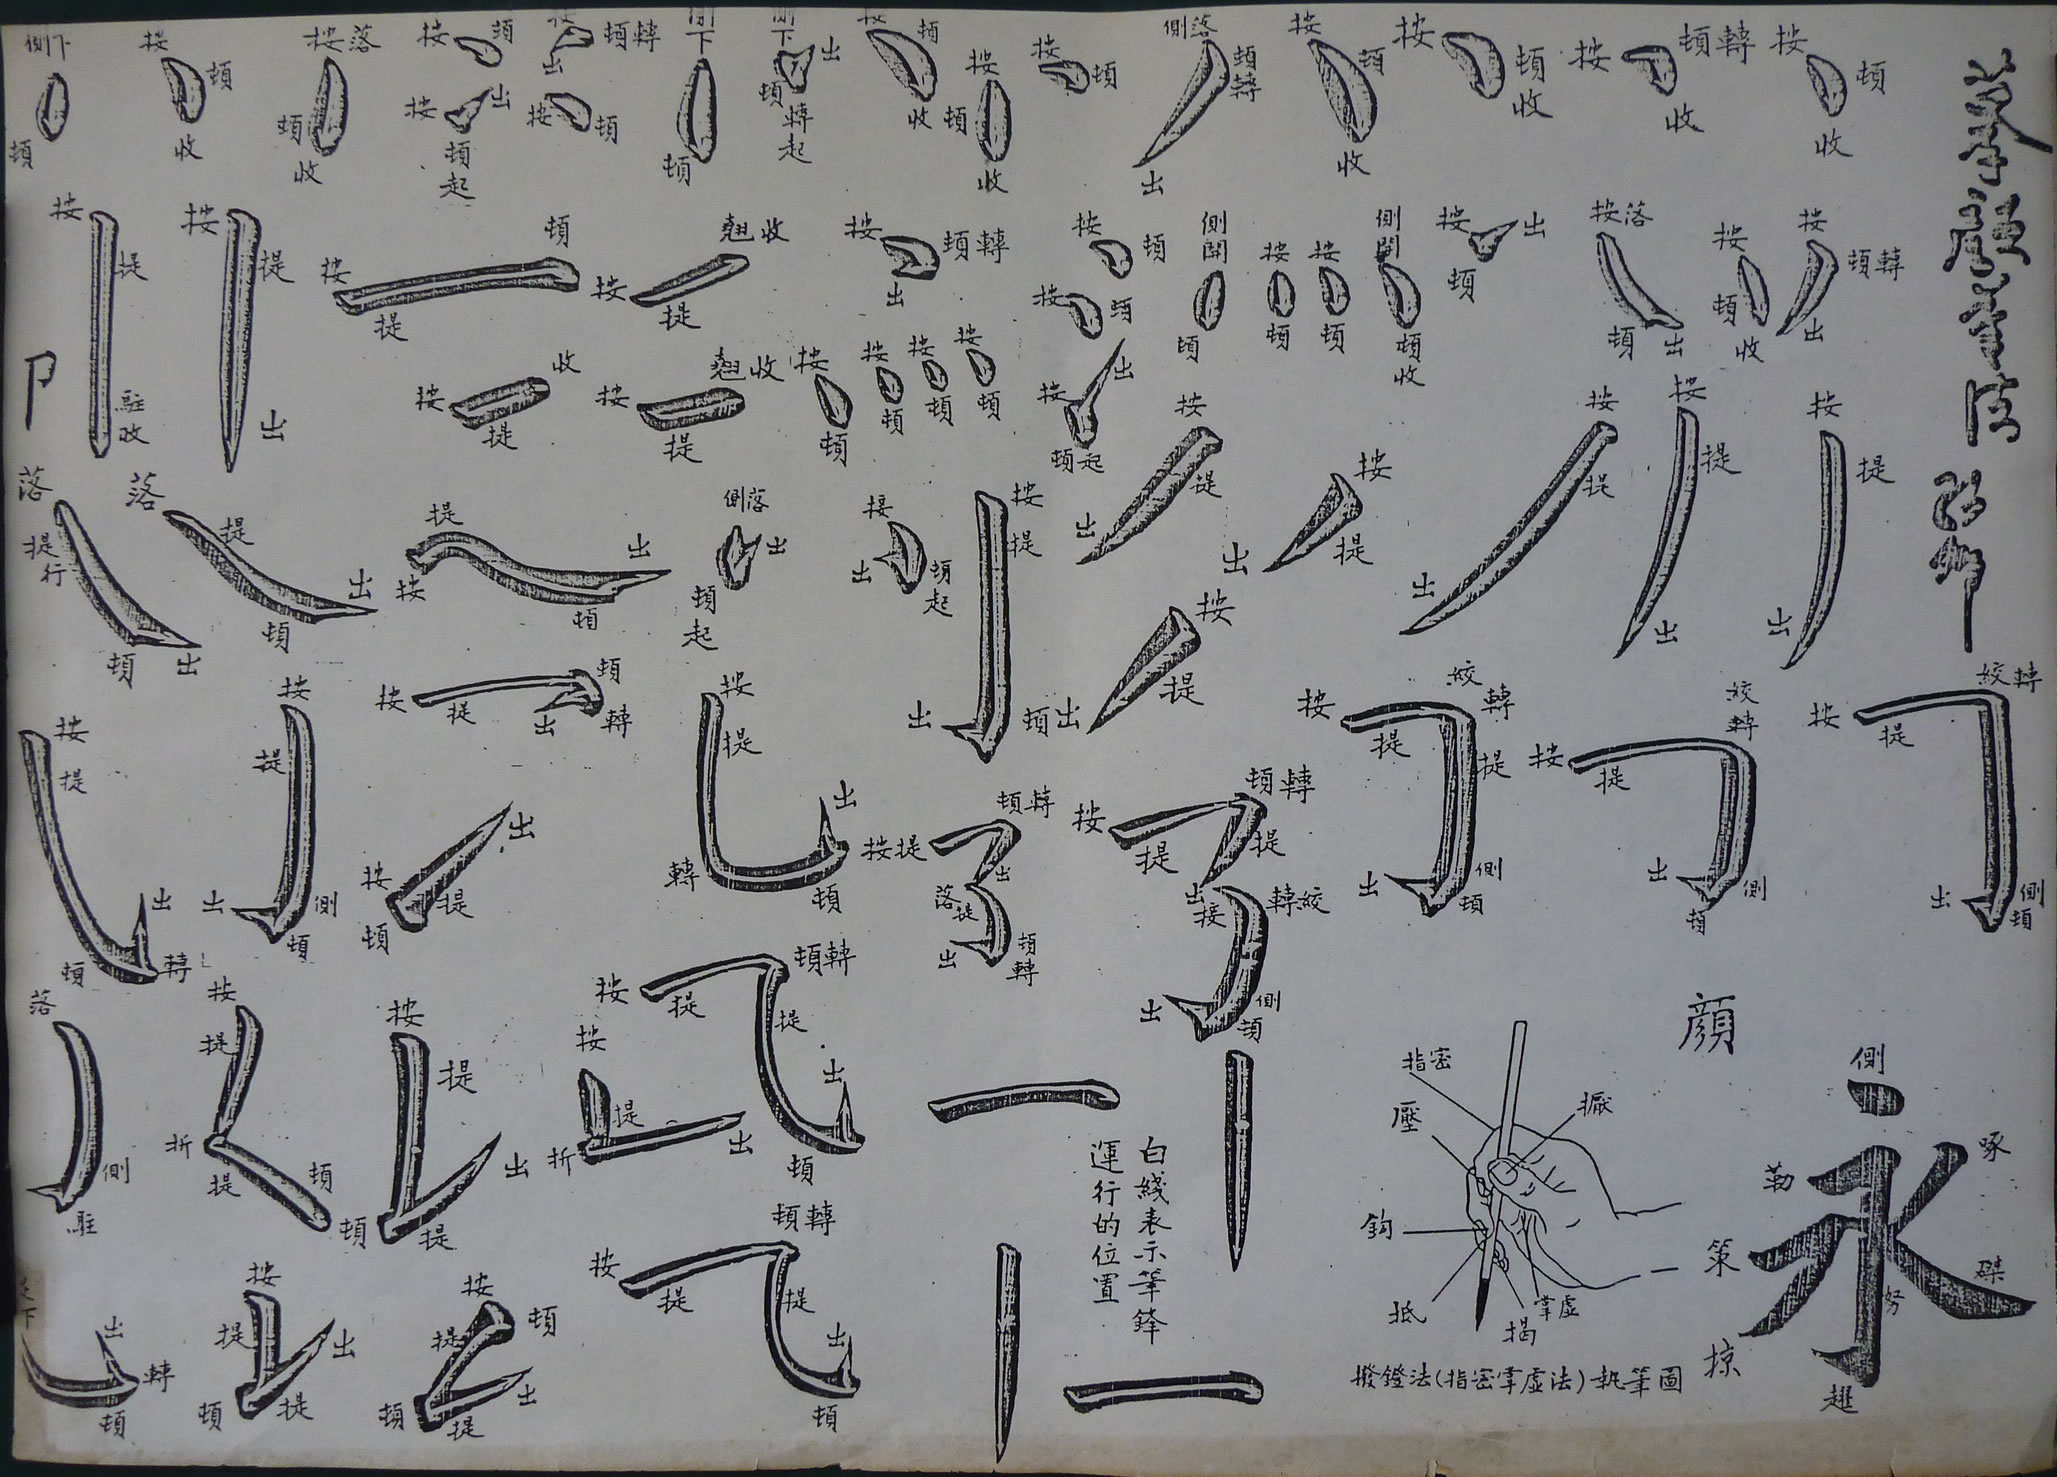 側下
頓
按
頓
收
按落
頓
收
按
頓
按
出
頓
起
頓轉
出
按
頓
下
頓
下
出
頓
轉
起
頓
收
按
頓
收
按
頓
側落
頓
轉
出
按
頓
收
按
頓
收
按
頓轉
收
按
頓
收
按
提
駐
收
按
提
出
按
提
頓
按
提
翹收
按
頓轉
出
按
頓
按
頓
側
開
頓
按
頓
按
頓
側
開
頓
收
按
出
頓
按落
頓
出
按
頓
收
按
頓轉
出
按
提
收
按
提
翹收
按
頓
按
頓
按
頓
按
頓
按
出
頓起
按
提
出
按
提
出
按
提
出
按
提
出
按
提
出
落
提
行
頓
出
落
提
頓
出
提
按
頓
出
側落
出
頓
起
按
出
頓
起
按
提
出
頓
按
提
出
按
提
頓
轉
出
按
提
出
頓
轉
按
提
側
頓
出
按
提
轉
頓
出
按
提
出
頓
按提
頓轉
出
落
頓
轉
出
按
提
頓轉
提
出
按
轉絞
側
頓
出
按
提
絞
轉
提
側
頓
出
按
提
絞
轉
側
頓
出
按
提
絞轉
側
頓
出
落
側
駐
按
提
折
提
頓
按
提
頓
提
出
按
提
折
出
按
提
頓轉
提
出
頓
下
出
轉
頓
按
提
頓
提
出
按
頓
提
頓
提
出
按
提
頓轉
提
出
頓
白綫表示筆鋒
運行的位置
指密
壓
擫
鈎
抵
揭
掌虛
撥鐙法(指密掌虛法)執筆圖
顏
側
勒
啄
策
磔
努
掠
趯